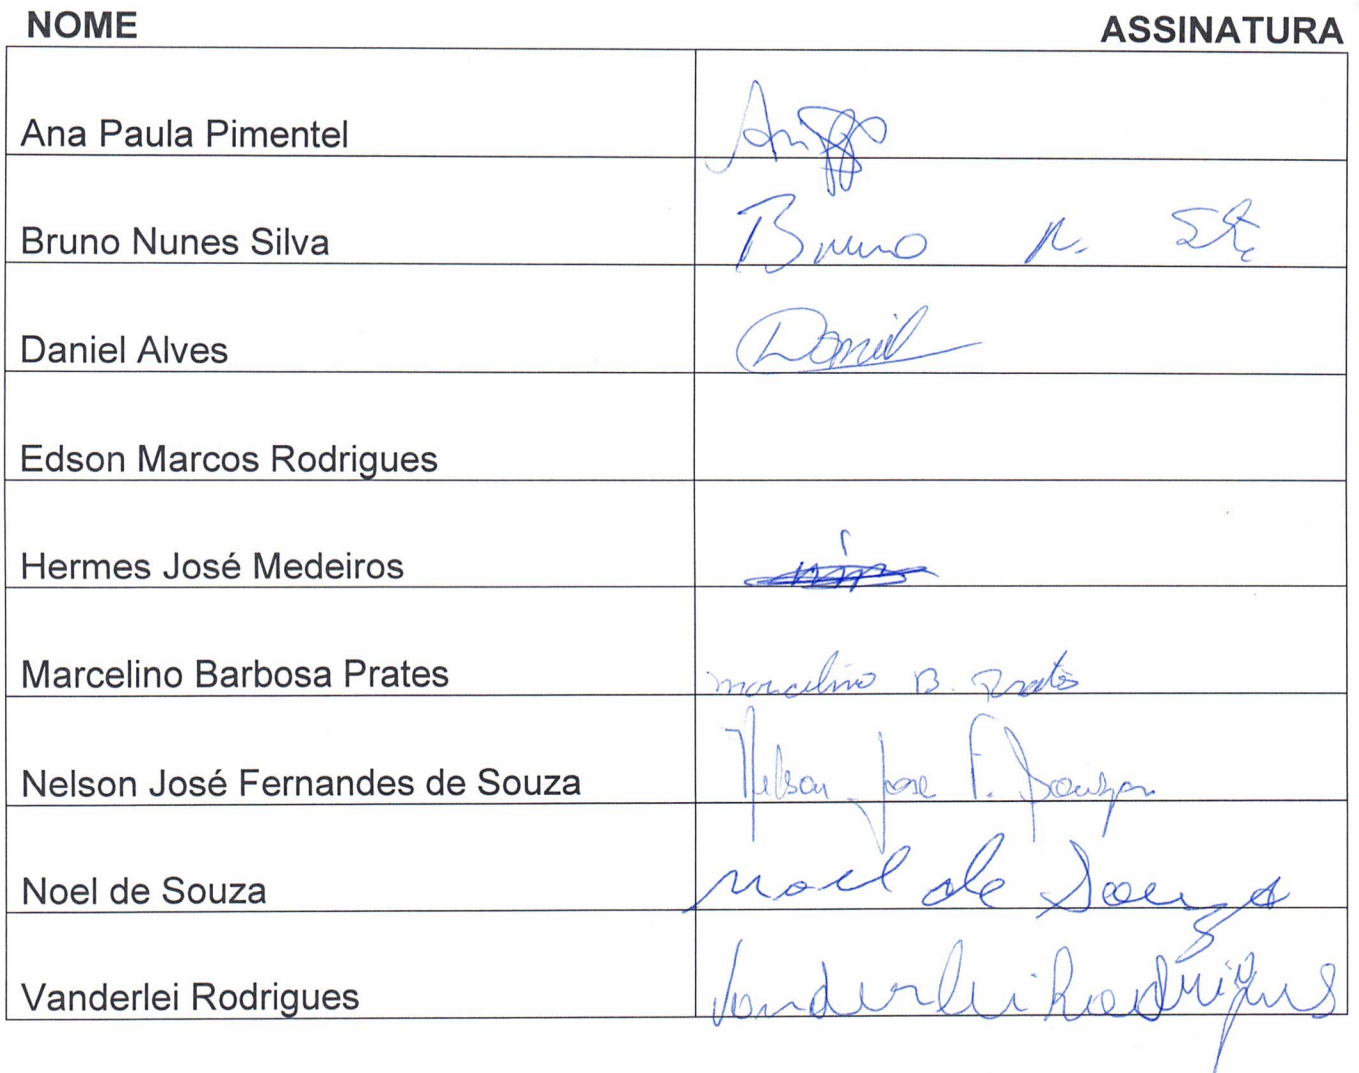 NOME ASSINATURA
Ana Paula Pimentel
Bruno Nunes Silva Bruno N.
Daniel Alves Daniel
Edson Marcos Rodrigues
Hermes José Medeiros
Marcelino Barbosa Prates marcelino B. Prates
Nelson José Fernandes de Souza Nelson Jose F. Souza
Noel de Souza Noel de Souza
Vanderlei Rodrigues Vanderlei Rodrigues